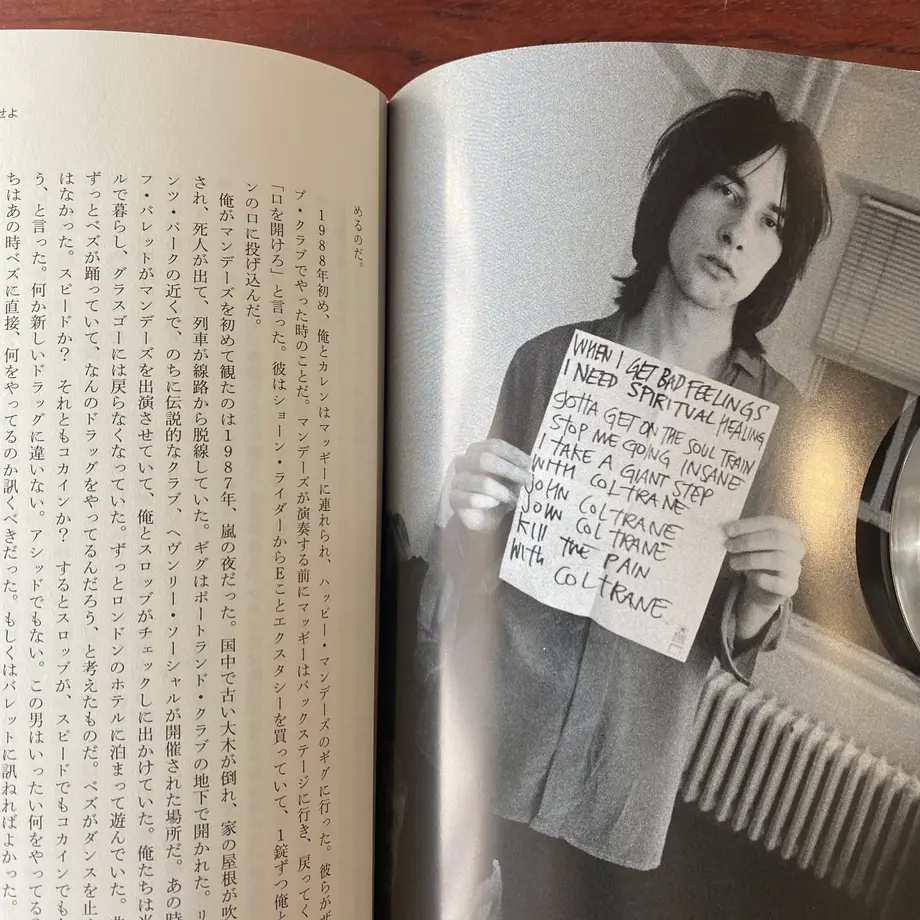 せよ
めるのだ。
1988年初め、俺とカレンはマッギーに連れられ、ハッピー・マンデーズのギグに行った。彼らがザ
プ・クラブでやった時のことだ。マンデーズが演奏する前にマッギーはバックステージに行き、戻ってく
「口を開けろ」と言った。彼はショーン・ライダーからEことエクスタシーを買っていて、1錠ずつ俺と
ンの口に投げ込んだ。
俺がマンデーズを初めて観たのは1987年、嵐の夜だった。国中で古い大木が倒れ、家の屋根が吹
され、死人が出て、列車が線路から脱線していた。ギグはポートランド・クラブの地下で開かれた。リ
ンツ・パークの近くで、のちに伝説的なクラブ、ヘヴンリー・ソーシャルが開催された場所だ。あの時
フ・バレットがマンデーズを出演させていて、俺とスロッブがチェックしに出かけていた。俺たちは
ルで暮らし、グラスゴーには戻らなくなっていた。ずっとロンドンのホテルに泊まって遊んでいた。
ずっとベズが踊っていて、なんのドラッグをやってるんだろう、と考えたものだ。ベズがダンスを止
はなかった。スピードか？　それともコカインか？　するとスロッブが、スピードでもコカインでも
う、と言った。何か新しいドラッグに違いない。アシッドでもない。この男はいったい何をやってる
ちはあの時ベズに直接、何をやってるのか訊くべきだった。もしくはバレットに訊ねればよかった。
WHEN I GET BAD FEELINGS
I NEED SPIRITUAL HEALING
GOTTA GET ON THE SOUL TRAIN
STOP ME GOING INSANE
I TAKE A GIANT STEP
WITH COLTRANE
JOHN COLTRANE
JOHN COLTRANE
KILL THE PAIN
WITH COLTRANE